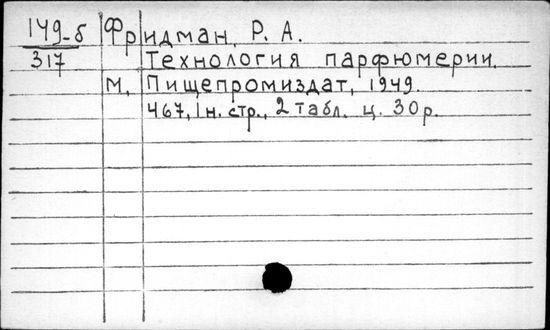 149-б Фридман, Р. А.
317 Технология парфюмерии.
М, Пищепромиздат, 1949.
467, 1 н. стр., 2 табл. ц. 30 р.